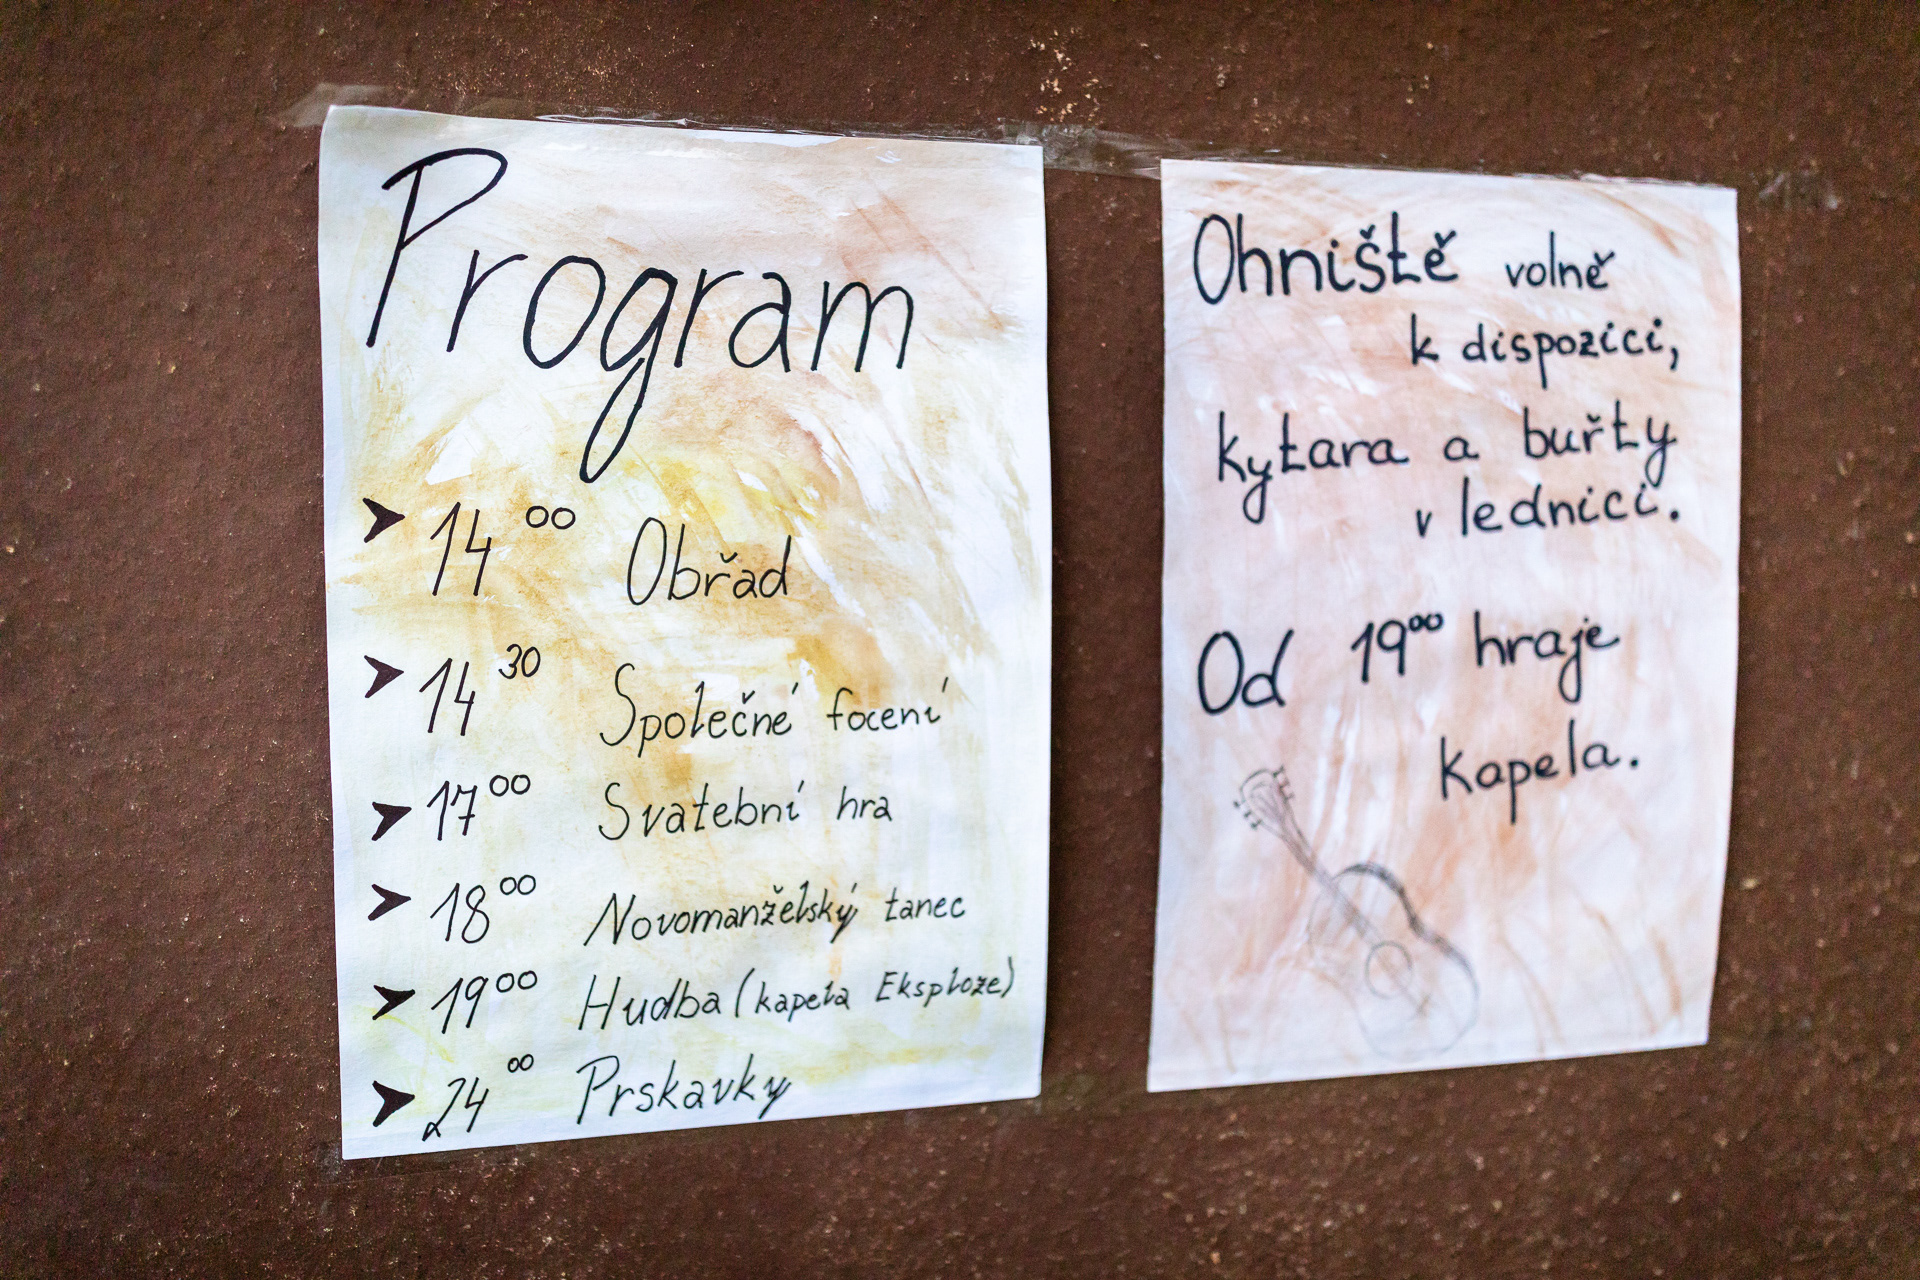 Program
14⁰⁰ Obřad
14³⁰ Společné focení
17⁰⁰ Svatební hra
18⁰⁰ Novomanželský tanec
19⁰⁰ Hudba (kapela Eksploze)
24⁰⁰ Prskavky
Ohniště volně
k dispozici,
kytara a buřty
v lednici.
Od 19⁰⁰ hraje
kapela.